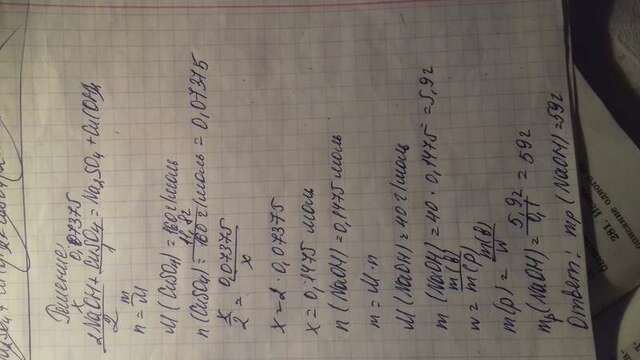 Решение:
x 0,07375
2NaOH + CuSO4 = Na2SO4 + Cu(OH)2
2
n = m/M
M (CuSO4) = 160 г/моль
n (CuSO4) = 11,8г / 160 г/моль = 0,07375
x/2 = 0,07375/x
x = 2 · 0,07375
x = 0,1475 моль
n (NaOH) = 0,1475 моль
m = M · n
M (NaOH) = 40 г/моль
m (NaOH) = 40 · 0,1475 = 5,9г
w = m(в)/m(р)
m(р) = m(в)/w
mр (NaOH) = 5,9г/0,1 = 59г
Ответ: mр (NaOH) = 59г
281. И
одного